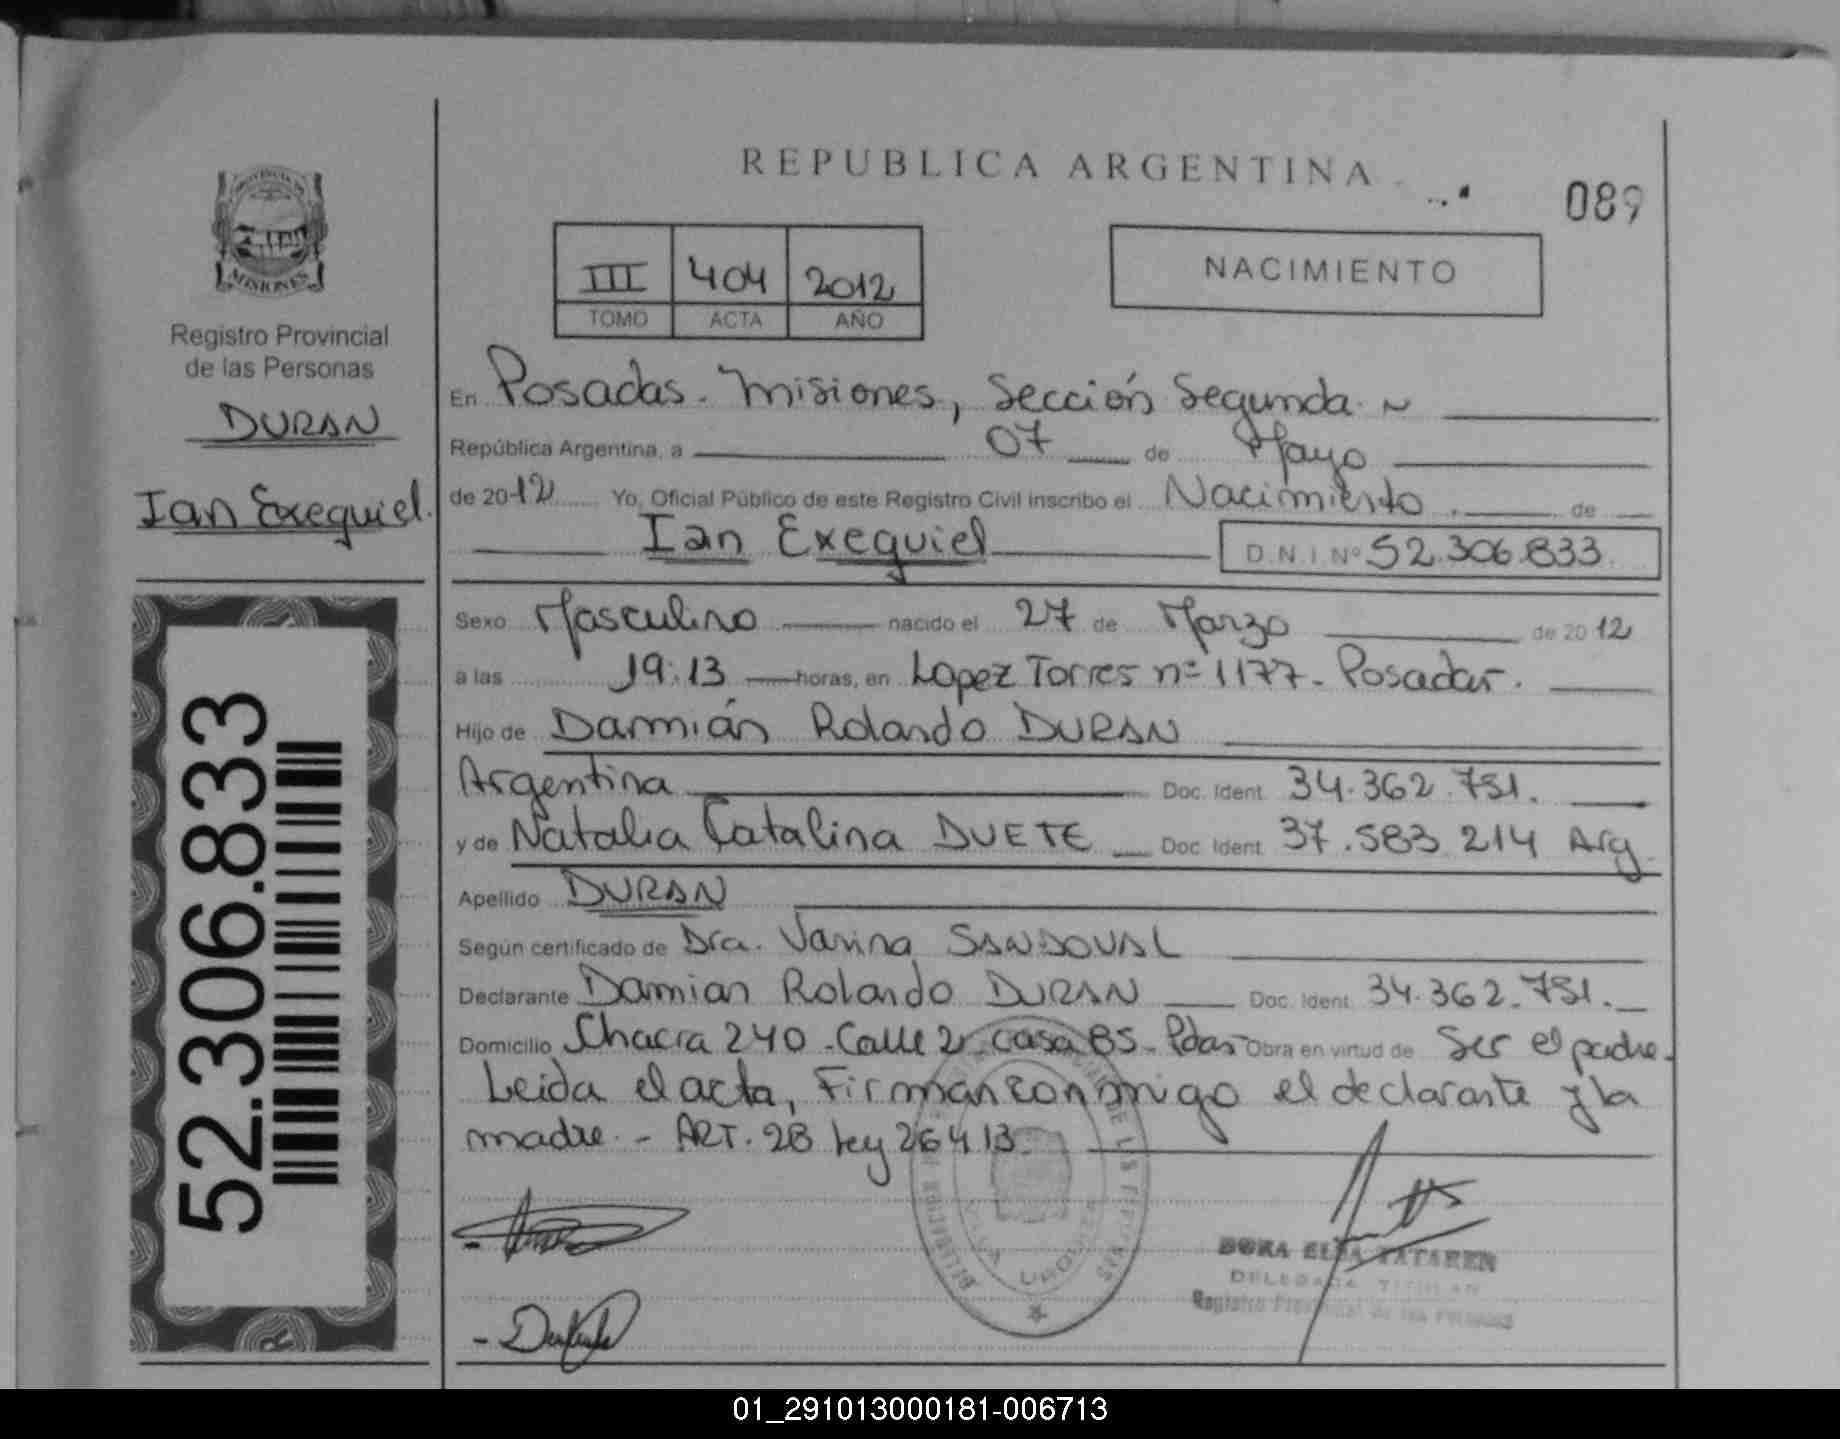 REPUBLICA ARGENTINA
089
PROVINCIA DE
MISIONES
Registro Provincial
de las Personas
DURAN
Ian Exequiel.
52.306.833
III 404 2012
TOMO ACTA AÑO
NACIMIENTO
En Posadas. Misiones, Sección Segunda. ~
República Argentina, a 07 de Mayo
de 2012 Yo, Oficial Público de este Registro Civil inscribo el Nacimiento. de
Ian Exequiel D.N.I. Nº 52.306.833.
Sexo Masculino nacido el 27 de Marzo de 2012
a las 19:13 horas, en Lopez Torres nº 1177. Posadas.
Hijo de Damián Rolando DURAN
Argentina Doc. Ident. 34.362.751.
y de Natalia Catalina DUETE Doc. Ident. 37.583.214 Arg.
Apellido DURAN
Según certificado de Dra. Vanina SANDOVAL
Declarante Damian Rolando DURAN Doc. Ident. 34.362.751.
Domicilio Chacra 240 - Calle 2 - casa 85 - Pdas - Obra en virtud de Ser el padre.
Leida el acta, Firman conmigo el declarante y la
madre. - ART. 28 Ley 26413.
VILLA URQUIZA
DORA ELDA TATAREN
DELEGADA TITULAR
Registro Provincial de las Personas
01_291013000181-006713